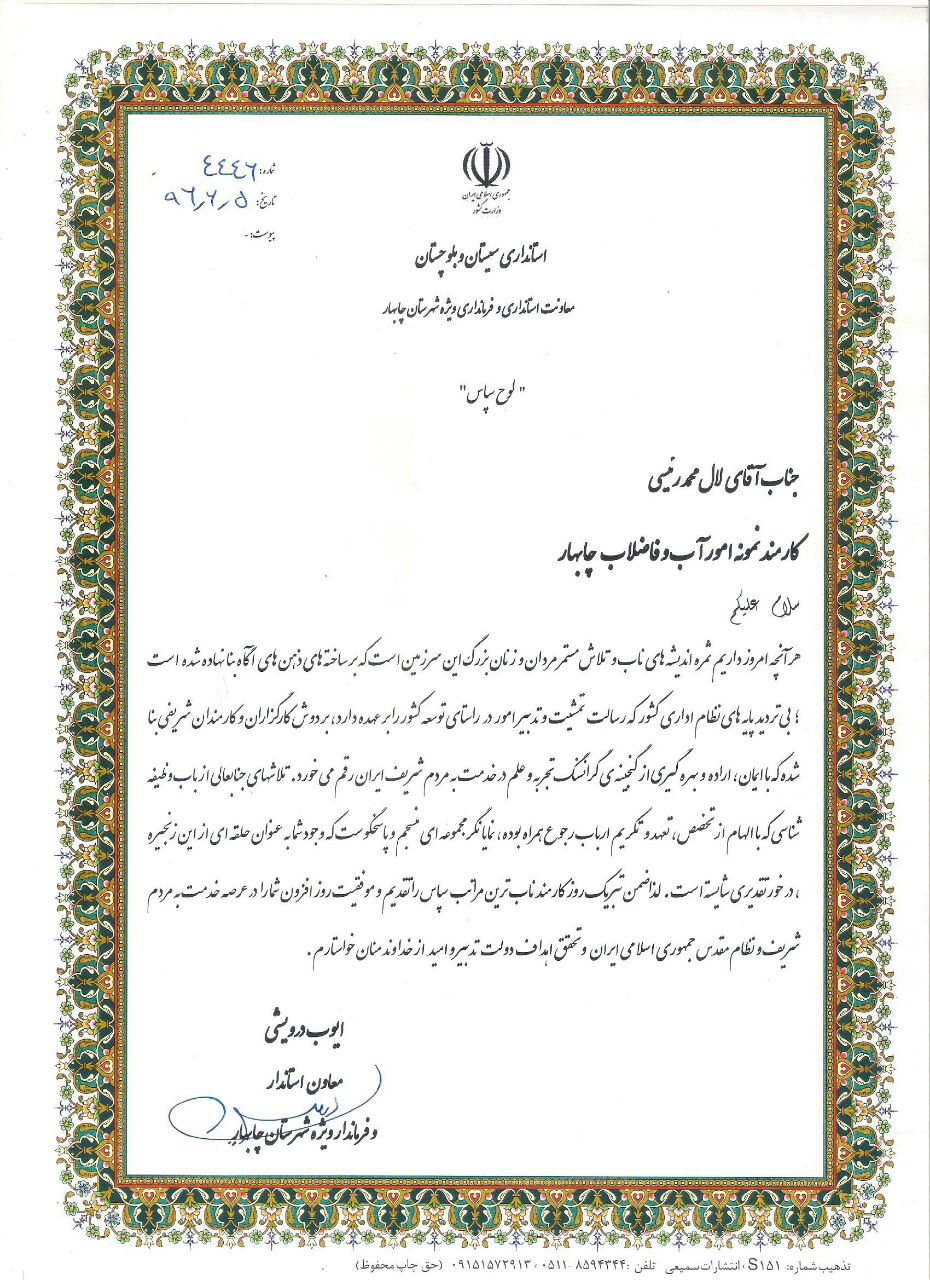 جمهوری اسلامی ایران
وزارت کشور
شماره: ٤٤٤٦
تاریخ: ٩٦٫٦٫٥
پیوست: -
استانداری سیستان و بلوچستان
معاونت استانداری و فرمانداری ویژه شهرستان چابهار
" لوح سپاس"
جناب آقای لال محمد رئیسی
کارمند نمونه امور آب و فاضلاب چابهار
سلام علیکم
هر آنچه امروز داریم ثمره اندیشه های ناب و تلاش مستمر مردان و زنان بزرگ این سرزمین است که بر ساخته های ذهن های آگاه بنا نهاده شده است
؛ بی تردید پایه های نظام اداری کشور که رسالت تمشیت و تدبیر امور در راستای توسعه کشور را بر عهده دارد، بر دوش کارگزاران و کارمندان شریفی بنا
شده که با ایمان، اراده و بهره گیری از گنجینه ی گرانسنگ تجربه و علم در خدمت به مردم شریف ایران رقم می خورد. تلاشهای جنابعالی از باب وظیفه
شناسی که با الهام از تخصص، تعهد و تکریم ارباب رجوع همراه بوده، نمایانگر مجموعه ای منسجم و پاسخگوست که وجود شما به عنوان حلقه ای از این زنجیره
، در خور تقدیری شایسته است. لذا ضمن تبریک روز کارمند ناب ترین مراتب سپاس را تقدیم و موفقیت روز افزون شما را در عرصه خدمت به مردم
شریف و نظام مقدس جمهوری اسلامی ایران و تحقق اهداف دولت تدبیر و امید از خداوند منان خواستارم.
ایوب درویشی
معاون استاندار
و فرماندار ویژه شهرستان چابهار
تذهیب شماره: S۱۵۱، انتشارات سمیعی تلفن: ۸۵۹۴۳۴۴-۰۵۱۱ ، ۰۹۱۵۱۵۷۲۹۱۳ (حق چاپ محفوظ)